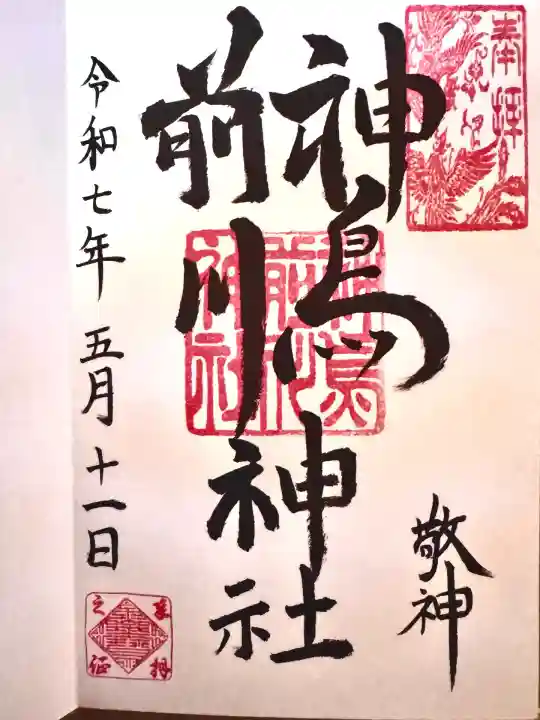 奉拝
敬神
神鳥前川神社
神鳥前川神社
令和七年五月十一日
参拝之証